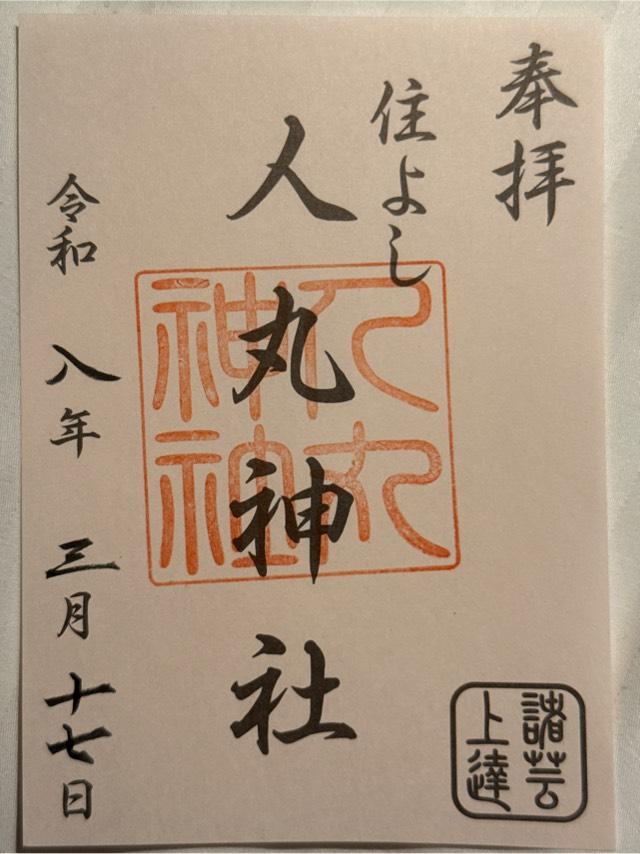 奉拝
住よし
人丸神社
人丸
神社
令和八年三月十七日
諸芸
上達